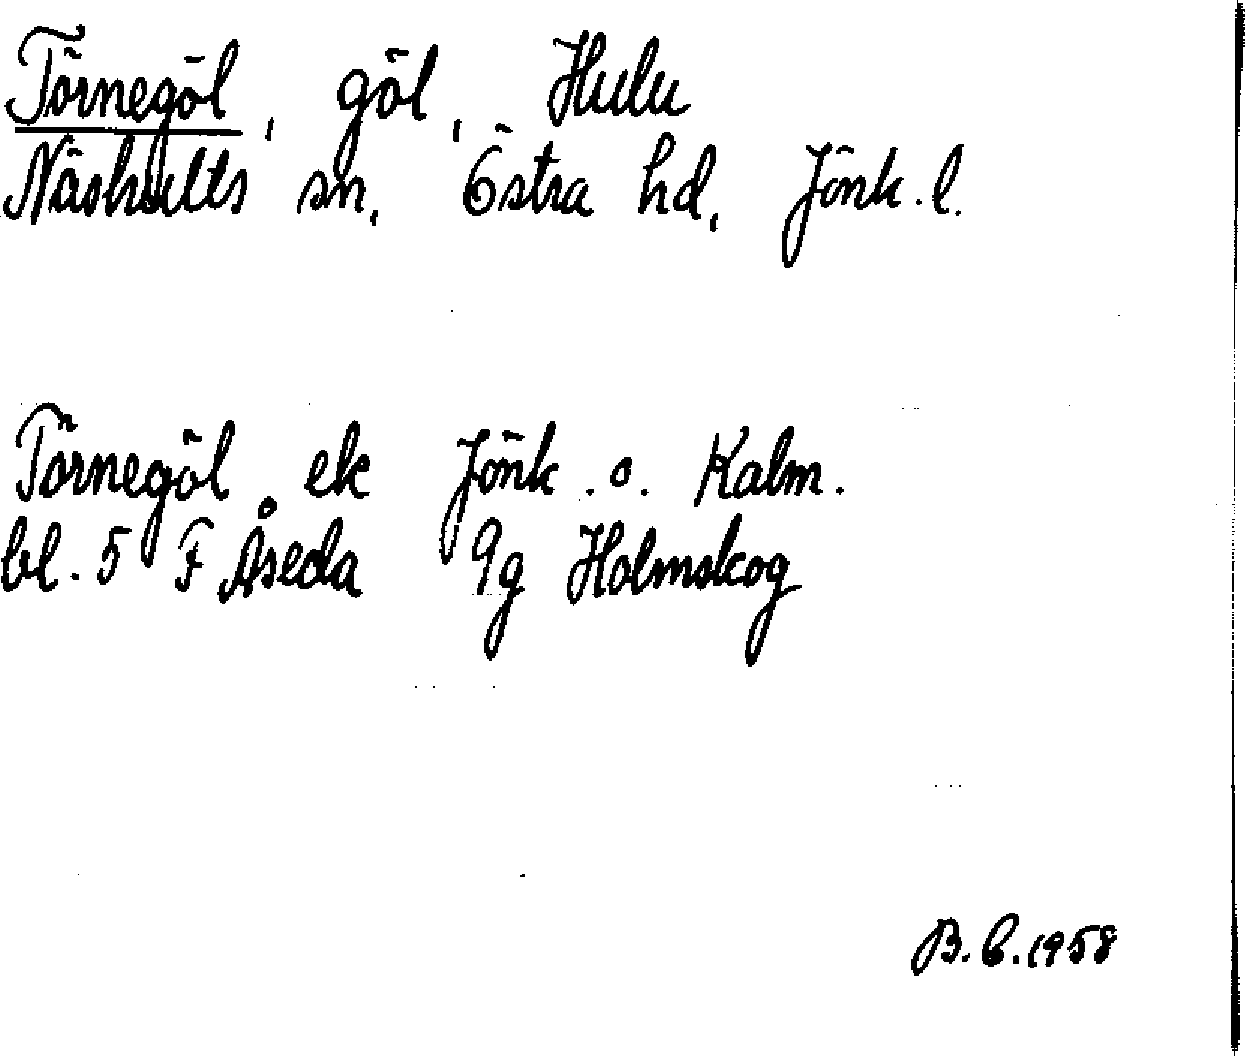 Törnegöl, göl, Hulu
Näshults sn, Östra hd, Jönk. l.
Törnegöl ek Jönk. o. Kalm.
bl. 5 F Åseda 9g Holmskog
B. C. 1958